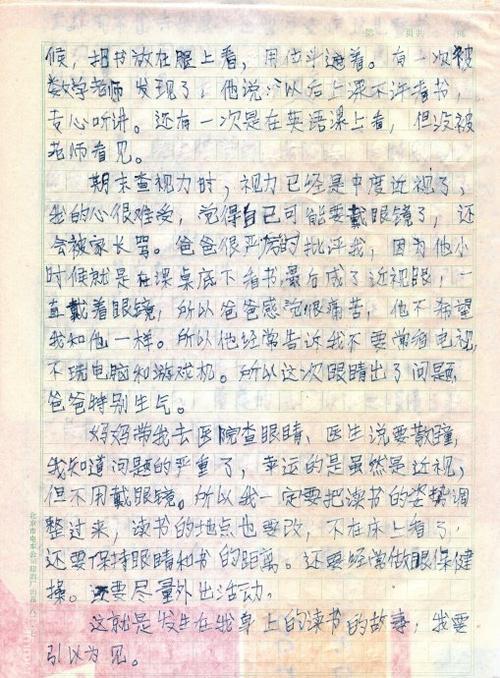 候，把书放在腿上看，用位斗遮着。有一次被
数学老师发现了，他说："以后上课不许看书，
专心听讲。还有一次是在英语课上看，但没被
老师看见。
期末查视力时，视力已经是中度近视了，
我的心很难受，觉得自己可能要戴眼镜了，还
会被家长骂。爸爸很严厉的批评我，因为他小
时候就是在课桌底下看书最后成了近视眼，一
直戴着眼镜，所以爸爸感觉很痛苦，他不希望
我和他一样。所以他经常告诉我不要常看电视，
不玩电脑和游戏机。所以这次眼睛出了问题，
爸爸特别生气。
妈妈带我去医院查眼睛、医生说要散瞳，
我知道问题的严重了，幸运的是虽然是近视，
但不用戴眼镜。所以我一定要把读书的姿势调
整过来，读书的地点也要改，不在床上看了，
还要保持眼睛和书的距离。还要经常做眼保健
操。还要尽量外出活动。
这就是发生在我身上的读书的故事，我要
引以为见。